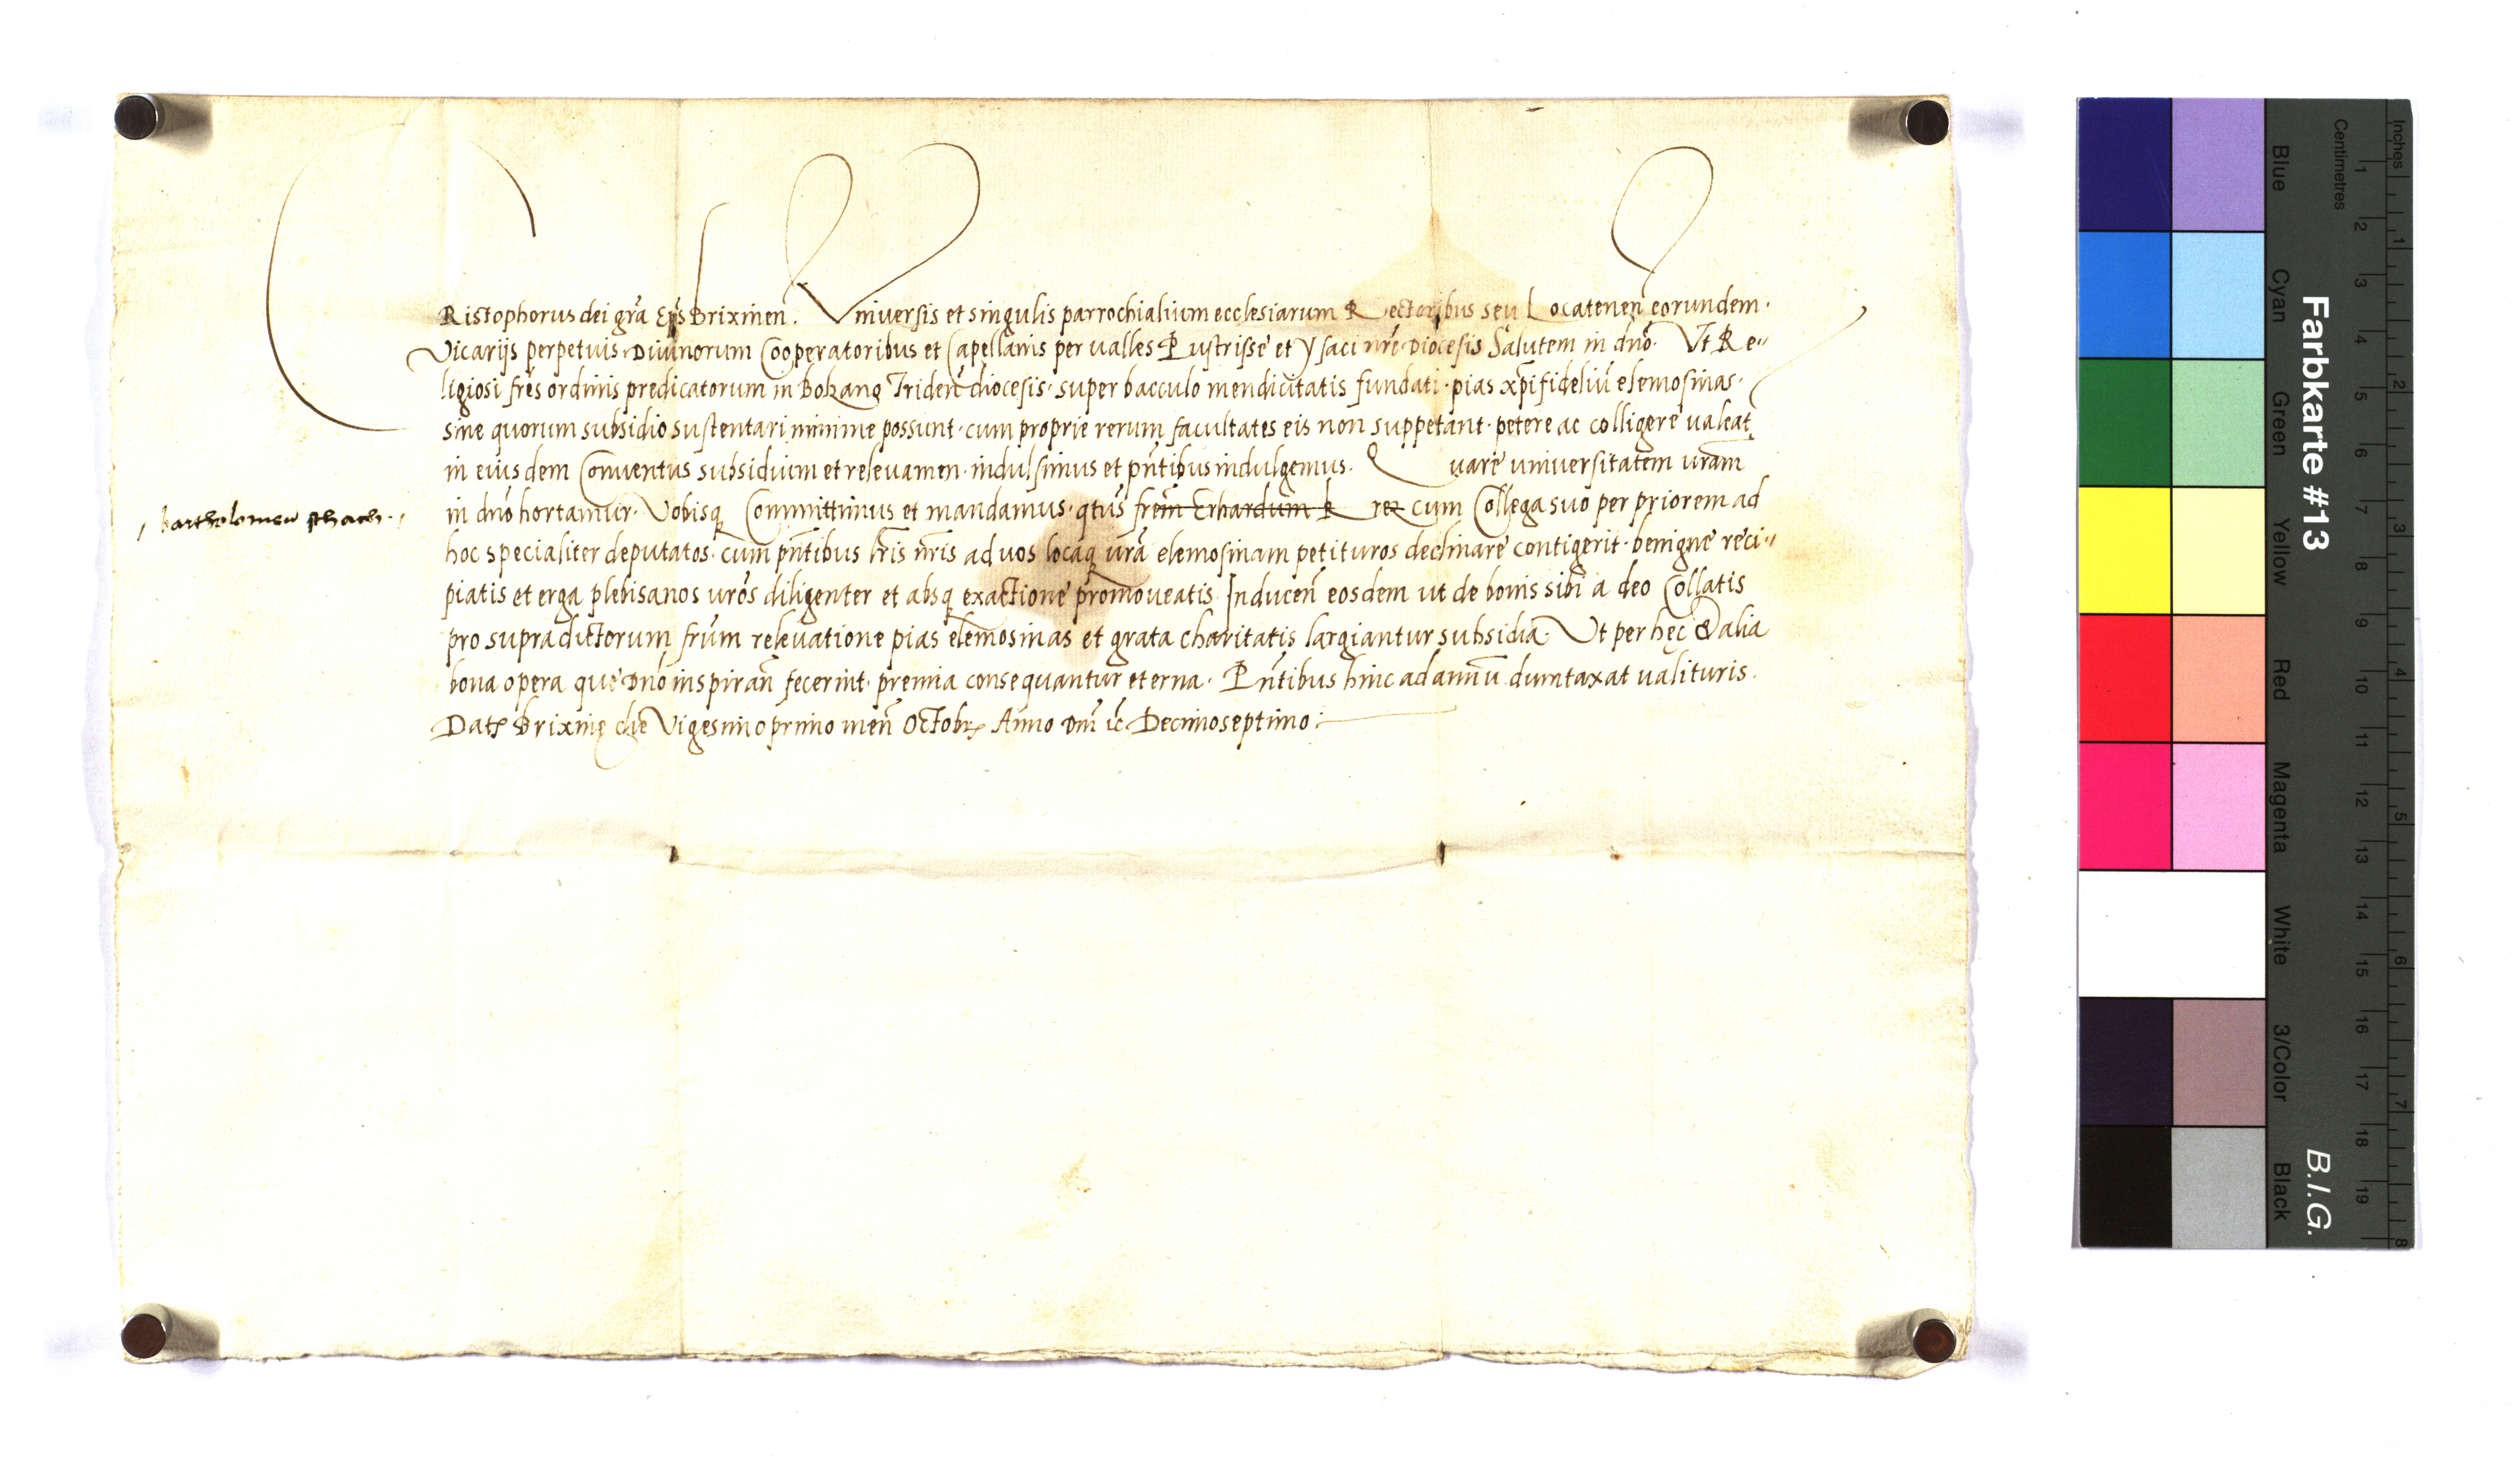 CRistophorus dei gr̃a Ep̃s Brixinen̄. Vniuersis et singulis parrochialium ecclesiarum Rectoribus seu Locatenen̄ eorundem·
Vicarijs perpetuis· Diuinorum Cooperatoribus et Capellanis per ualles Pustrissę et ysaci nr̃ę Diocesis Salutem in dno᷈. Vt Re„
ligiosi fr̃es ordinis predicatorum in Bolzano Triden̄ diocesis· super bacculo mendicitatis fundati· pias xp̄ifideliū elemosinas·
sine quorum subsidio sustentari minime possunt· cum proprie rerum facultates eis non suppetant· petere ac colligere ualeāt
in eiusdem Conuentus subsidium et releuamen· indulsimus et pn̄tibus indulgemus. Quare uniuersitatem ur̃am
in dn̄o hortamur· Vobisq Committimus et mandamus· qt̃us fr̃em Erhardum cum Collega suo per priorem ad
bartholomeu sthach
hoc specialiter deputatos· cum pn̄tibus lr̃is nr̃is ad uos locaq ur̃a elemosinam petituros declinare contigerit· benigne reci„
piatis et erga plebisanos ur̃os diligenter et absq exactione promoueatis Inducen̄ eosdem ut de bonis sibi a deo Collatis
pro supradictorum fr̃um releuatione pias elemosinas et grata charitatis largiantur subsidia· Vt per hęc & alia
bona opera que Dn̄o inspiran̄ fecerint· premia consequantur eterna· Pn̄tibus hinc ad annū dumtaxat ualituris.
Datꝭ Brixinę die Vigesimoprimo men̄ Octobrꝭ Anno Dn̄i ꝛc Decimoseptimo:
Farbkarte #13
B.I.G.
Inches
Centimetres
Blue
Cyan
Green
Yellow
Red
Magenta
White
3/Color
Black
1 2 3 4 5 6 7 8 9 10 11 12 13 14 15 16 17 18 19
1 2 3 4 5 6 7 8